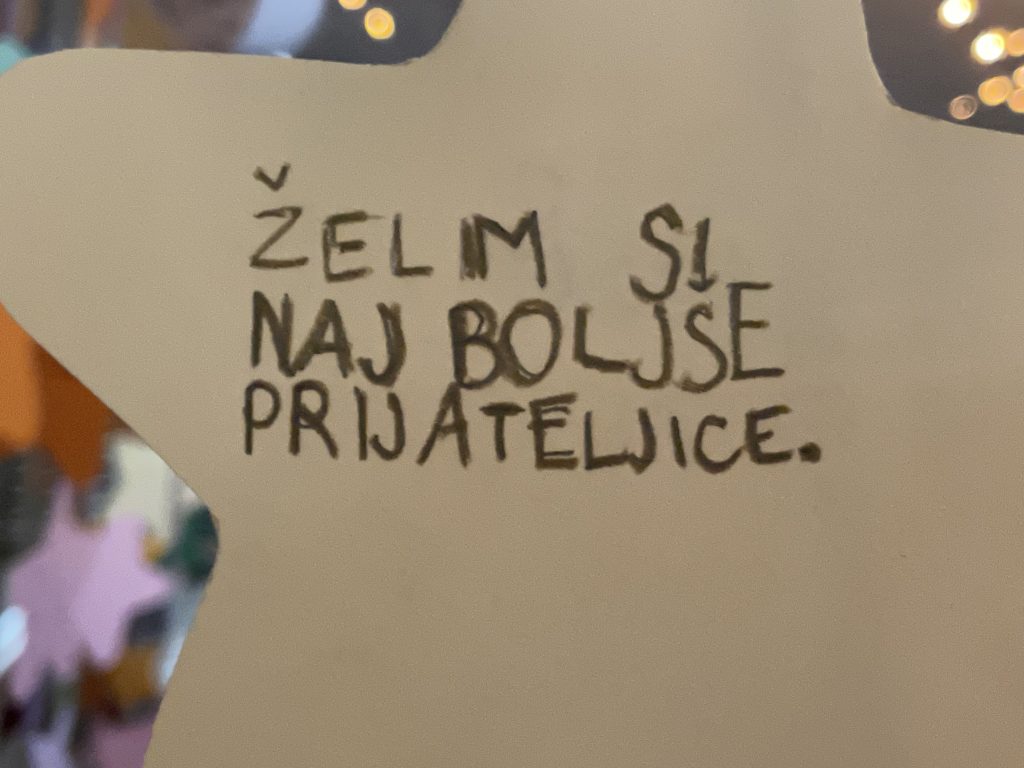 ŽELIM SI
NAJ BOLJSE
PRIJATELJICE.